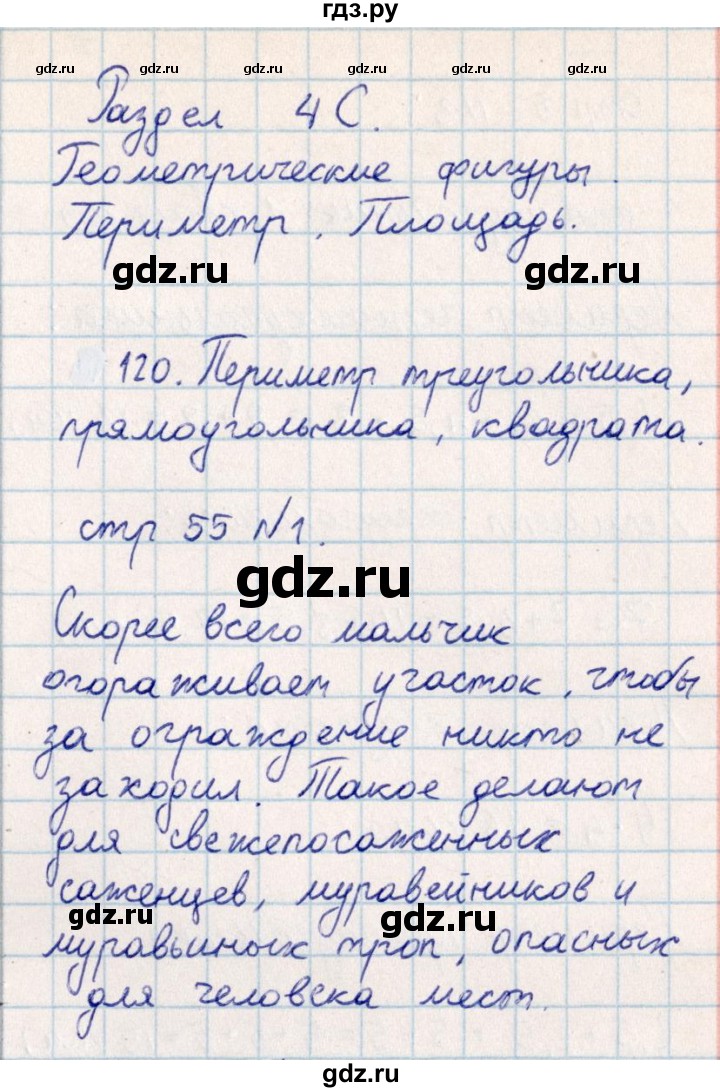 гдз.ру
gdz.ru gdz.ru gdz.ru gdz.ru
Раздел 4С.
Геометрические фигуры.
Периметр. Площадь.
gdz.ru gdz.ru
120. Периметр треугольника,
прямоугольника, квадрата.
стр 55 №1.
gdz.ru
Скорее всего мальчик
огораживает участок, чтобы
за ограждение никто не
заходил. Такое делают
для свежепосаженных
саженцев, муравейников и
gdz.ru gdz.ru
муравьиных троп, опасных
для человека мест.
gdz.ru gdz.ru gdz.ru gdz.ru